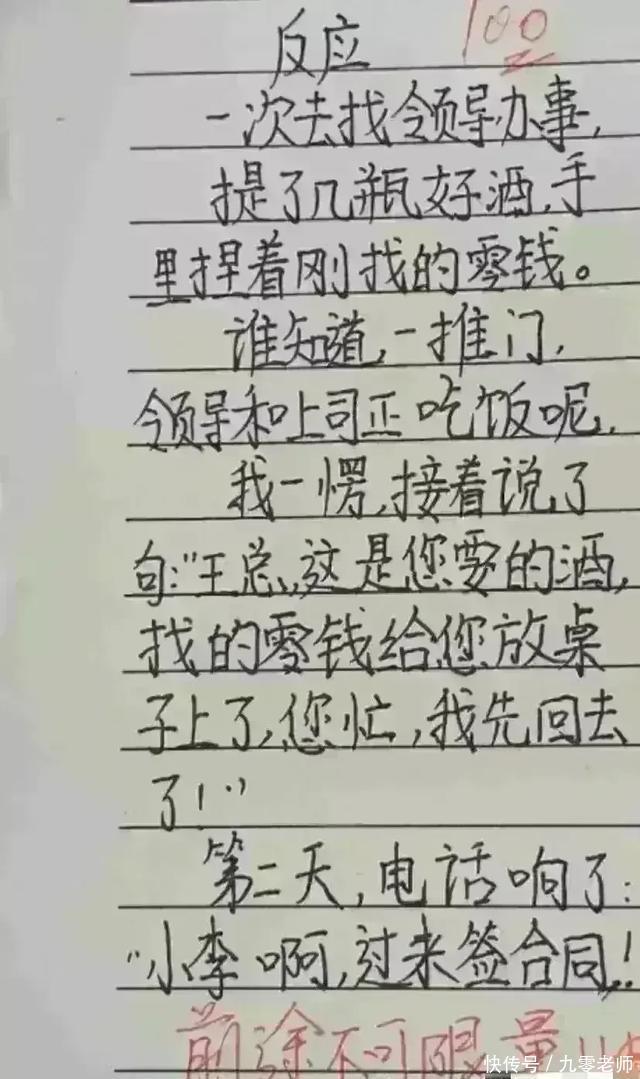 100
反应
一次去找领导办事,
提了几瓶好酒,手
里捏着刚找的零钱。
谁知道,一推门,
领导和上司正吃饭呢,
我一愣,接着说了
句:"王总,这是您要的酒,
找的零钱给您放桌
子上了,您忙,我先回去
了!"
第二天,电话响了:
"小李啊,过来签合同!
前途不可限量
快传号/九零老师